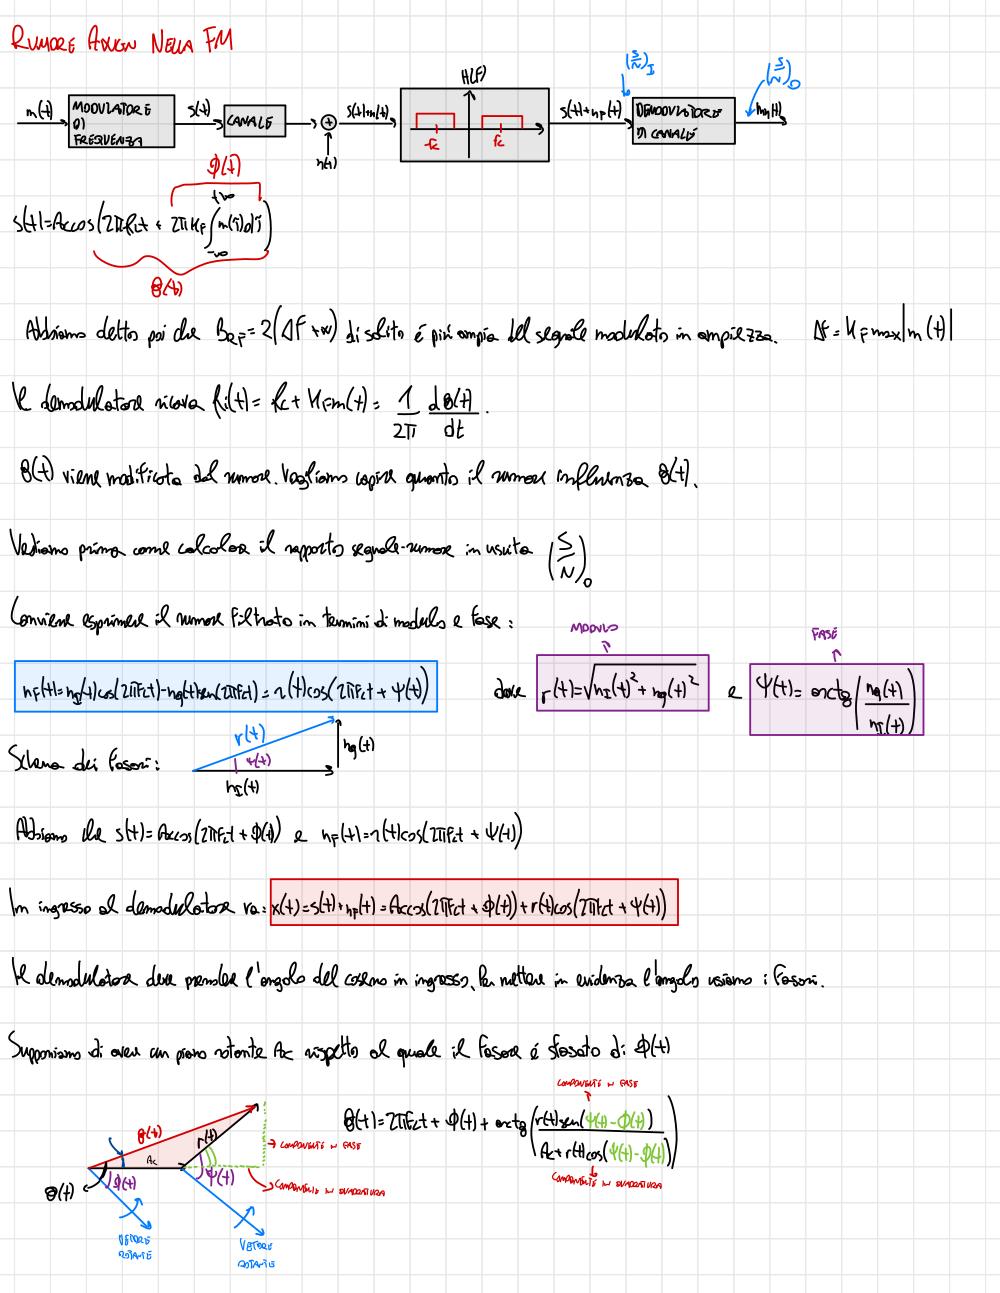 RUMORE AWGN NELLA FM
m(t)
MODULATORE DI FREQUENZA
s(t)
CANALE
n(t)
s(t)+n(t)
H(F)
-fc
fc
s(t)+n_F(t)
(S/N)_I
DEMODULATORE DI CANALE
(S/N)_O
ϕ(t)
s(t)=Accos(2πfct + 2πK_F ∫_{-∞}^{+∞} m(τ)dτ)
θ(t)
Abbiamo detto poi che B_RF = 2(ΔF + w) di solito é piú ampia del segnale modulato in ampiezza. Δf = K_F max|m(t)|
Il demodulatore ricava fi(t) = fc + K_F m(t) = 1/2π dθ(t)/dt.
θ(t) viene modificata dal rumore. Vogliamo capire quanto il rumore influenza θ(t).
Vediamo prima come calcolare il rapporto segnale-rumore in uscita (S/N)_O
Conviene esprimere il rumore filtrato in termini di modulo e fase:
MODULO
FASE
n_F(t)=n_I(t)cos(2πfct)-n_q(t)sen(2πfct)=r(t)cos(2πfct + Ψ(t)) dove r(t)=√(n_I(t)² + n_q(t)²) e Ψ(t) = arctg(n_q(t)/n_I(t))
Schema dei fasori:
r(t)
Ψ(t)
n_q(t)
n_I(t)
Abbiamo che s(t)=Accos(2πfct + ϕ(t)) e n_F(t)=r(t)cos(2πfct + Ψ(t))
In ingresso al demodulatore va: x(t)=s(t)+n_F(t)=Accos(2πfct + ϕ(t))+r(t)cos(2πfct + Ψ(t))
Il demodulatore deve prendere l'angolo del coseno in ingresso. Per mettere in evidenza l'angolo usiamo i fasori.
Supponiamo di avere un piano rotante Ac rispetto al quale il fasore é sfasato di ϕ(t)
COMPONENTE IN FASE
θ(t)=2πfct + ϕ(t) + arctg(r(t)sen(Ψ(t)-ϕ(t)) / Ac + r(t)cos(Ψ(t)-ϕ(t)))
COMPONENTE IN QUADRATURA
θ(t)
r(t)
Ac
COMPONENTE IN FASE
θ(t)
ϕ(t)
Ψ(t)
COMPONENTE IN QUADRATURA
VETTORE ROTANTE
VETTORE ROTANTE